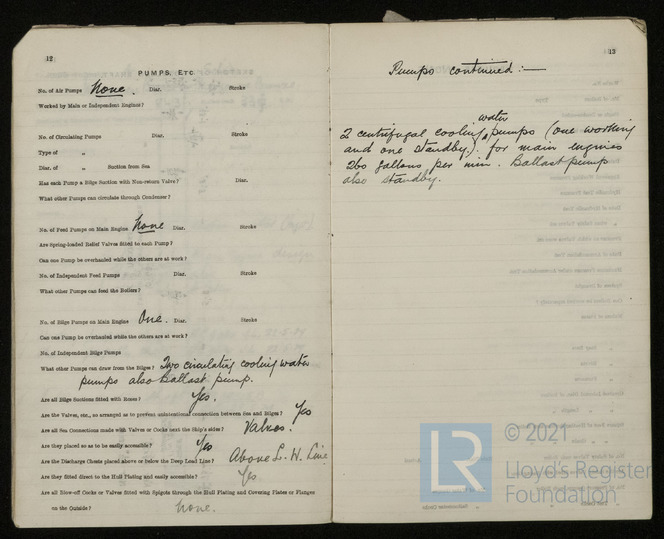 12
PUMPS, ETC
No. of Air Pumps None. Diar. Stroke
Worked by Main or Independent Engines?
No. of Circulating Pumps Diar. Stroke
Type of "
Diar. of " Suction from Sea
Has each Pump a Bilge Suction with Non-return Valve? Diar.
What other Pumps can circulate through Condenser?
No. of Feed Pumps on Main Engine None Diar. Stroke
Are Spring-loaded Relief Valves fitted to each Pump?
Can one Pump be overhauled while the others are at work?
No. of Independent Feed Pumps Diar. Stroke
What other Pumps can feed the Boilers?
No. of Bilge Pumps on Main Engine One. Diar. Stroke
Can one Pump be overhauled while the others are at work?
No. of Independent Bilge Pumps
What other Pumps can draw from the Bilges? Two circulating cooling water
pumps also Ballast pump.
Are all Bilge Suctions fitted with Roses? Yes.
Are the Valves, etc., so arranged as to prevent unintentional connection between Sea and Bilges? Yes
Are all Sea Connections made with Valves or Cocks next the Ship's sides? Valves.
Are they placed so as to be easily accessible? Yes
Are the Discharge Chests placed above or below the Deep Load Line? Above L. W. Line
Are they fitted direct to the Hull Plating and easily accessible? Yes
Are all Blow-off Cocks or Valves fitted with Spigots through the Hull Plating and Covering Plates or Flanges
on the Outside? None.
13
Pumps continued:—
2 centrifugal cooling water pumps (one working
and one standby.). for main engines
260 gallons per min. Ballast pump
also standby.
© 2021
LR
Lloyd's Register
Foundation